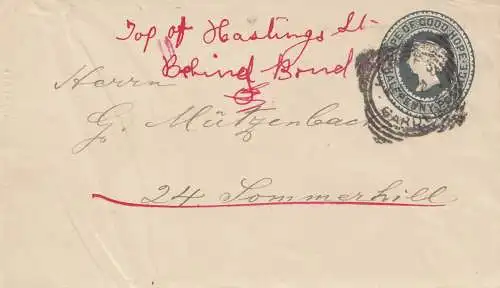 Top of Hastings St.
Behind Bond
CAPE OF GOOD HOPE
HALF PENNY
GARD
Herrn
G. Mützenbach
24 Sommerhill